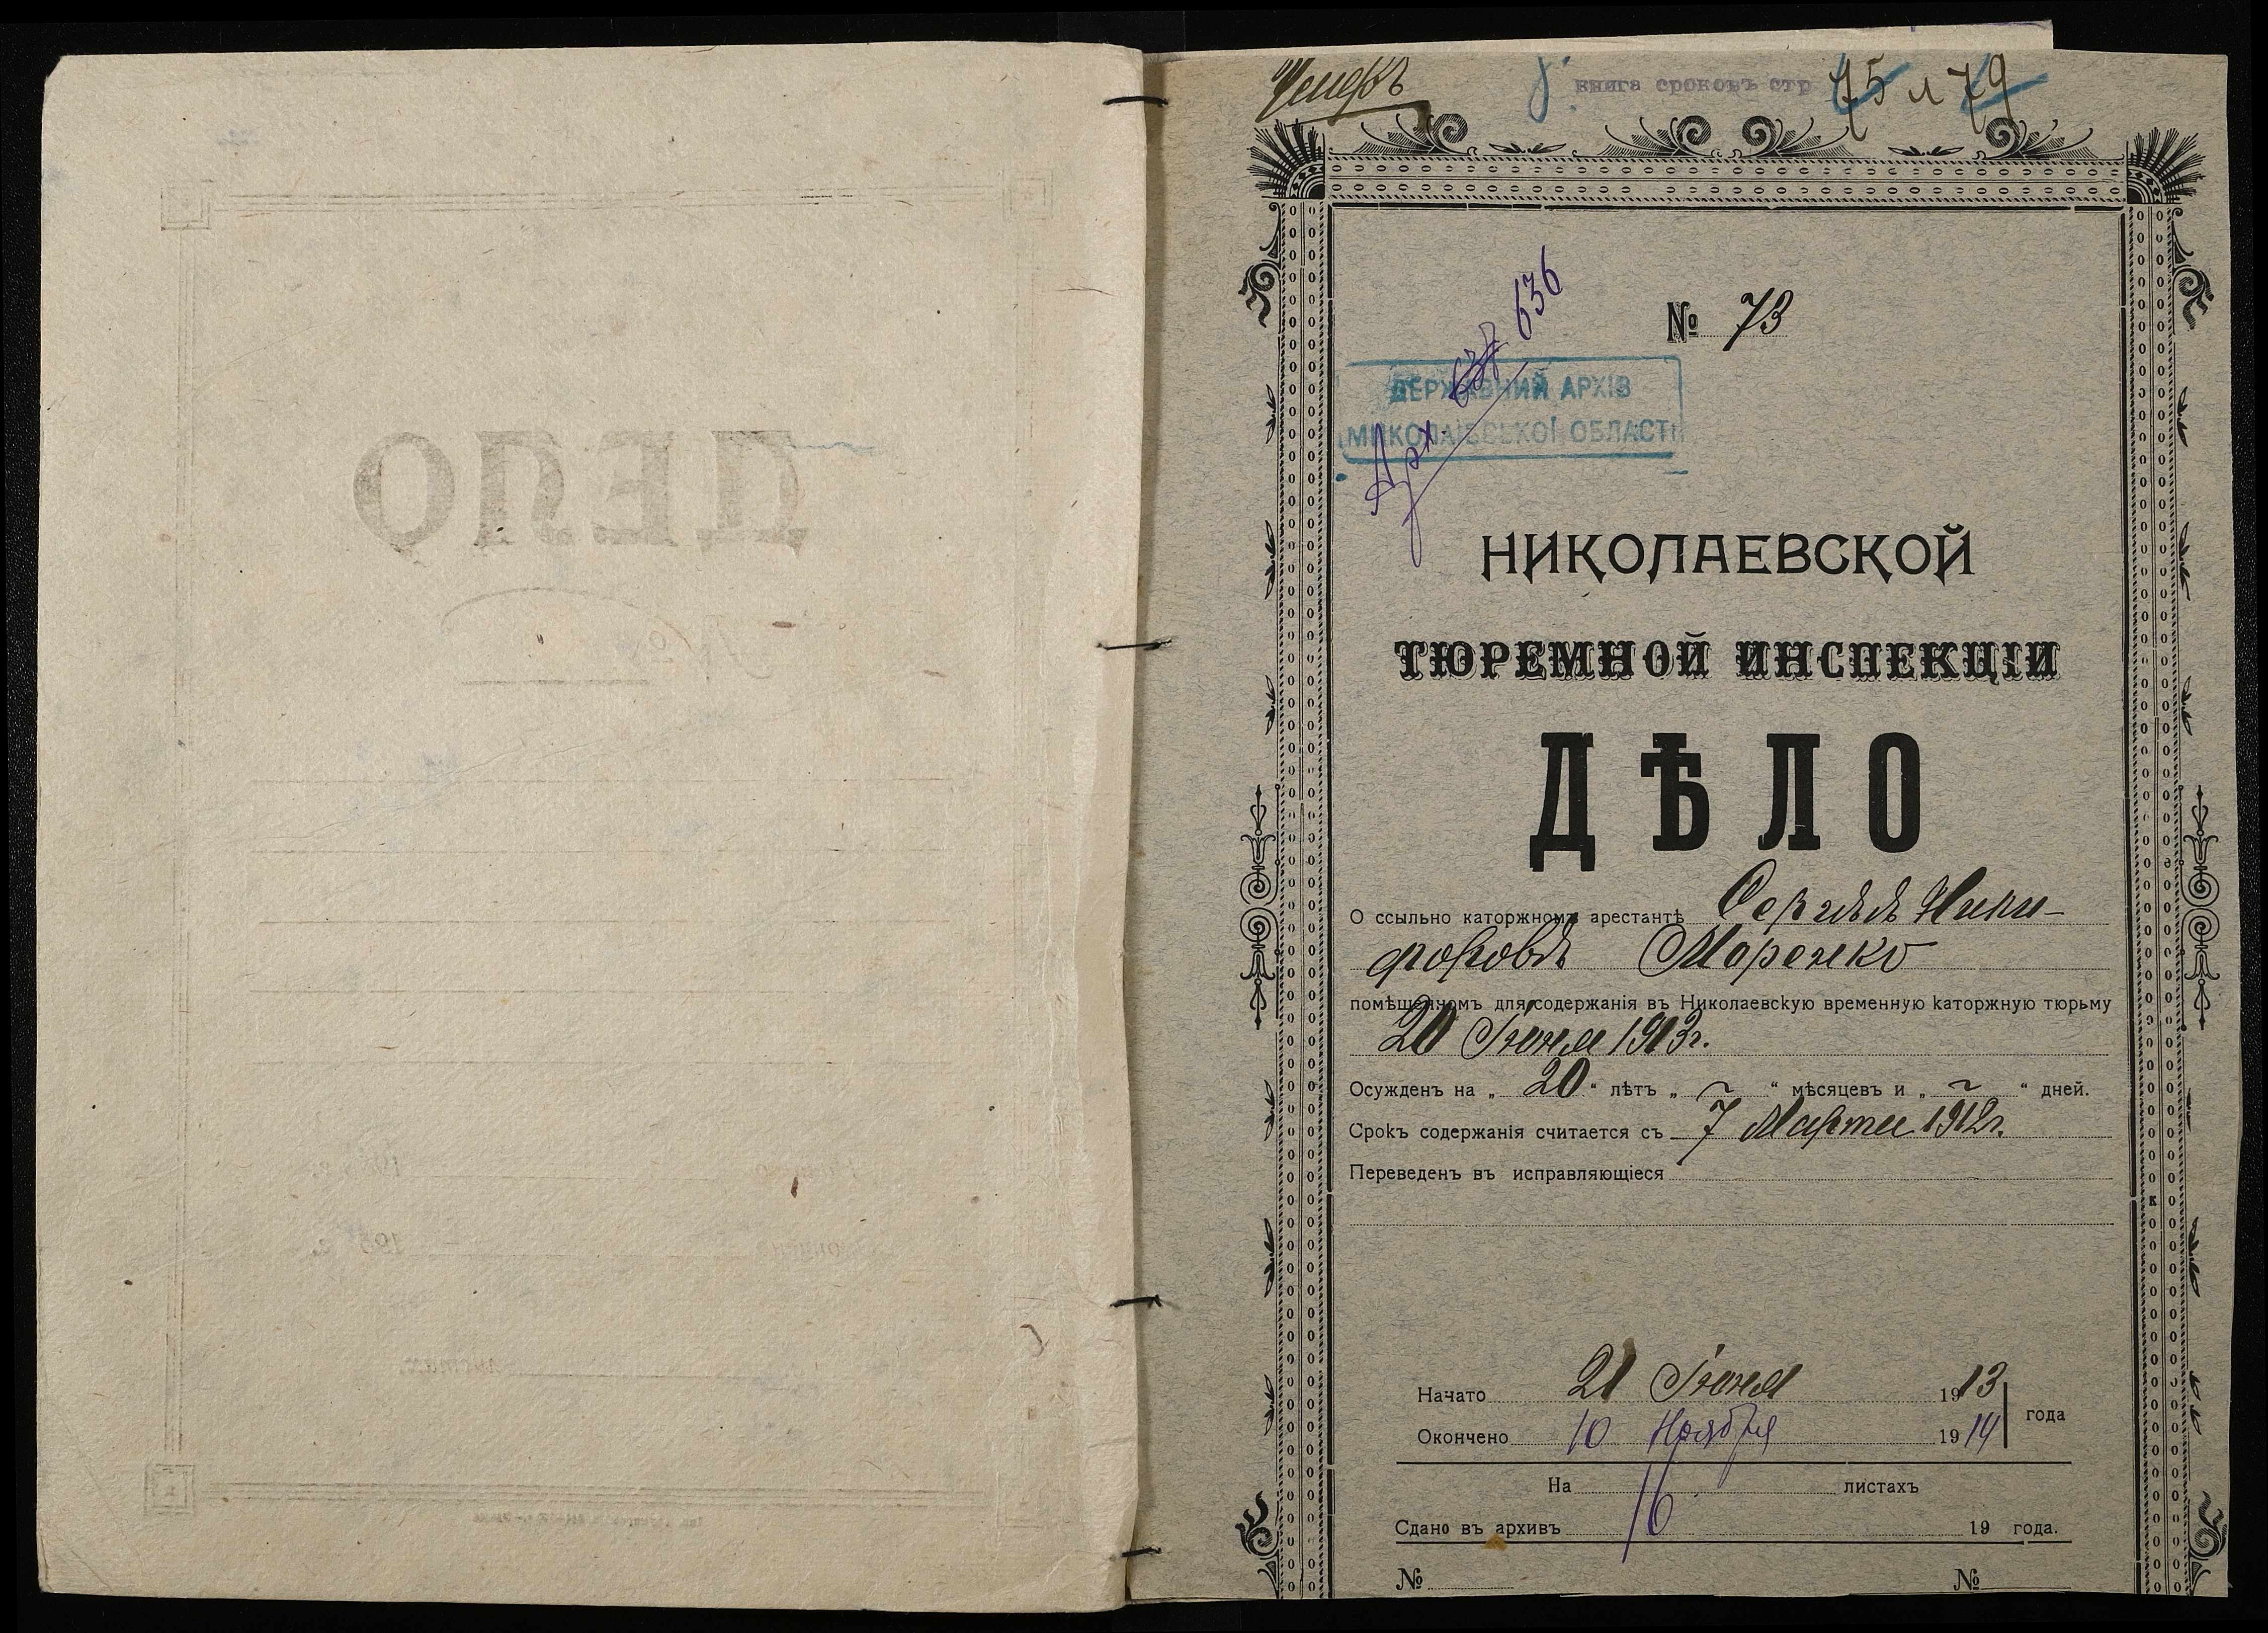 ДЕЛО
Умеръ
книга сроковъ стр 75 л 79
№ 73
Арх 637 636
ДЕРЖАВНИЙ АРХІВ
МИКОЛАЇВСЬКОЇ ОБЛАСТІ
НИКОЛАЕВСКОЙ
ТЮРЕМНОЙ ИНСПЕКЦІИ
ДѢЛО
О ссыльно каторжномъ арестантѣ Сергѣѣ Ники-
форовѣ Моренко
помѣщенномъ для содержанія въ Николаевскую временную каторжную тюрьму
20 Іюня 1913г.
Осужденъ на „ 20 “ лѣтъ „ ~ “ мѣсяцевъ и „ ~ “ дней.
Срокъ содержанія считается съ 7 Марта 1912г.
Переведенъ въ исправляющіеся
Начато 21 Іюня 1913
года
Окончено 10 Ноября 1914
На 16 листахъ
Сдано въ архивъ 19 года.
№ №